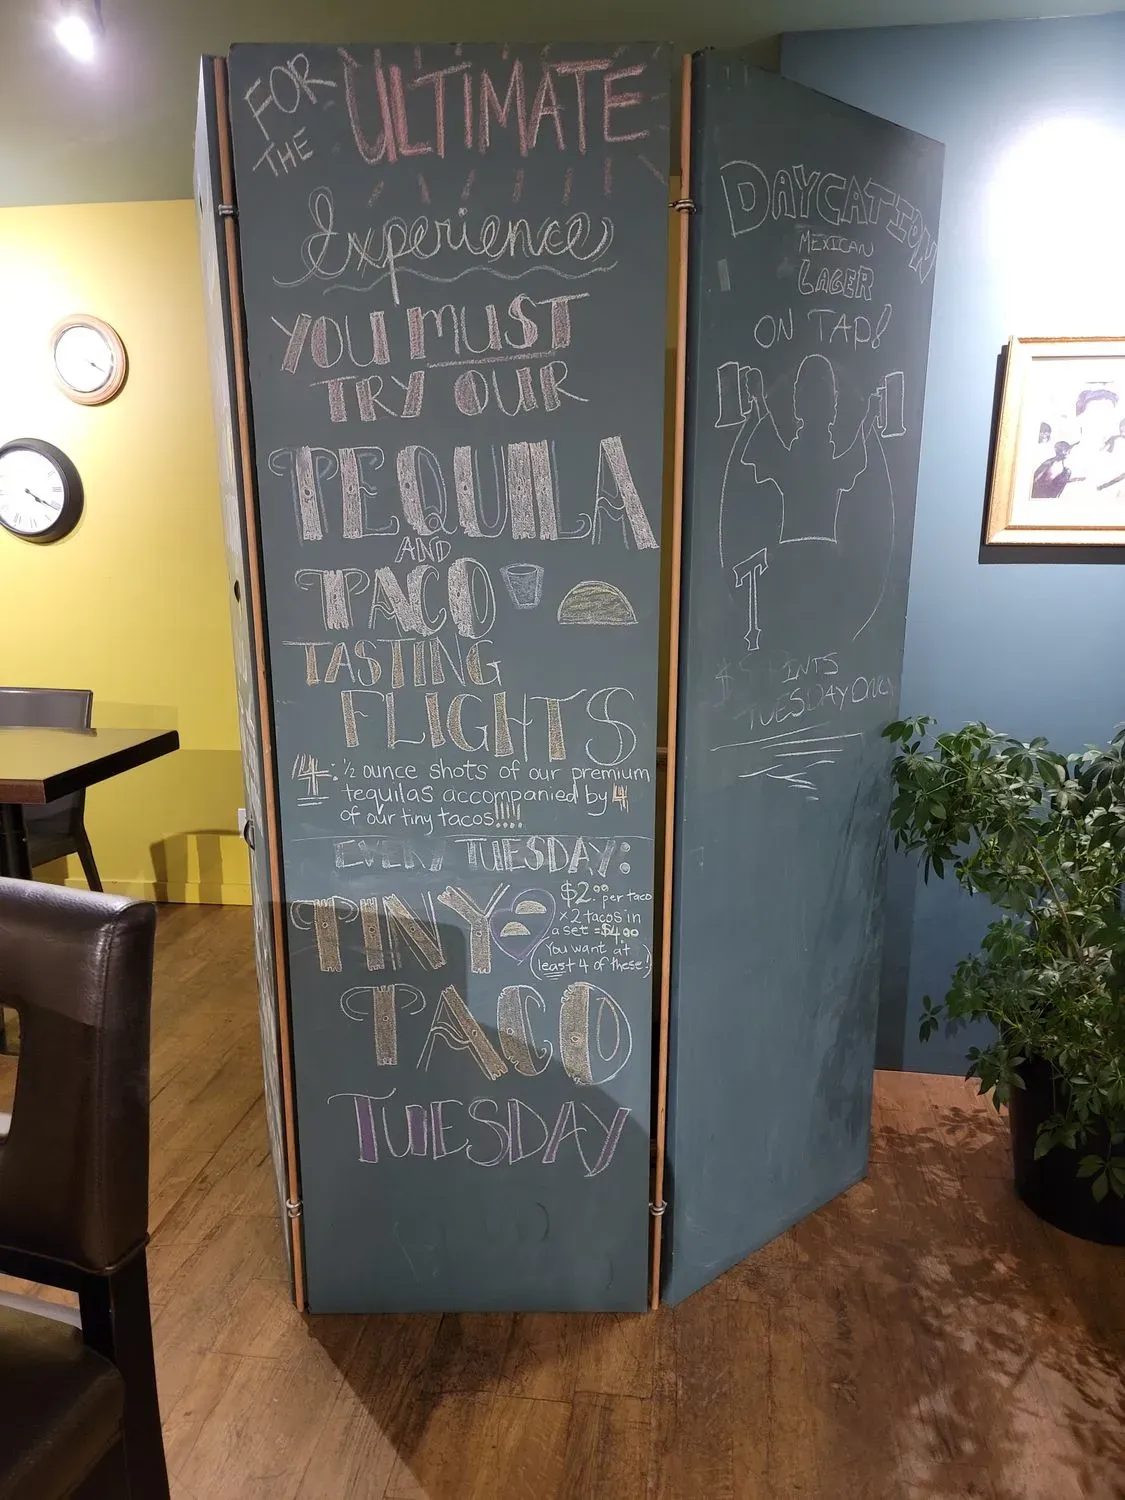 FOR THE ULTIMATE
Experience
YOU MUST
TRY OUR
TEQUILA
AND
TACO
TASTING
FLIGHTS
4: ½ ounce shots of our premium
tequilas accompanied by 4
of our tiny tacos!!!!
EVERY TUESDAY:
TINY
$2.00 per taco
x 2 tacos in
a set = $4.00
You want at
least 4 of these!
TACO
TUESDAY
DAYCATION
MEXICAN
LAGER
ON TAP!
T
$5 PINTS
TUESDAY ONLY